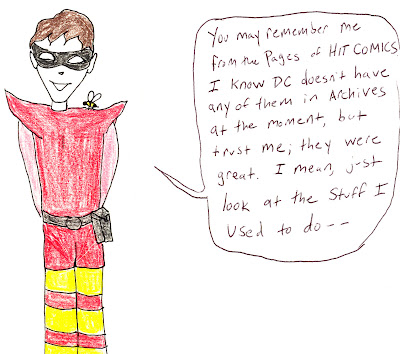 You may remember me
from the Pages of HIT COMICS
I know DC doesn't have
any of them in Archives
at the moment, but
trust me; they were
great. I mean, j-st
look at the Stuff I
used to do--